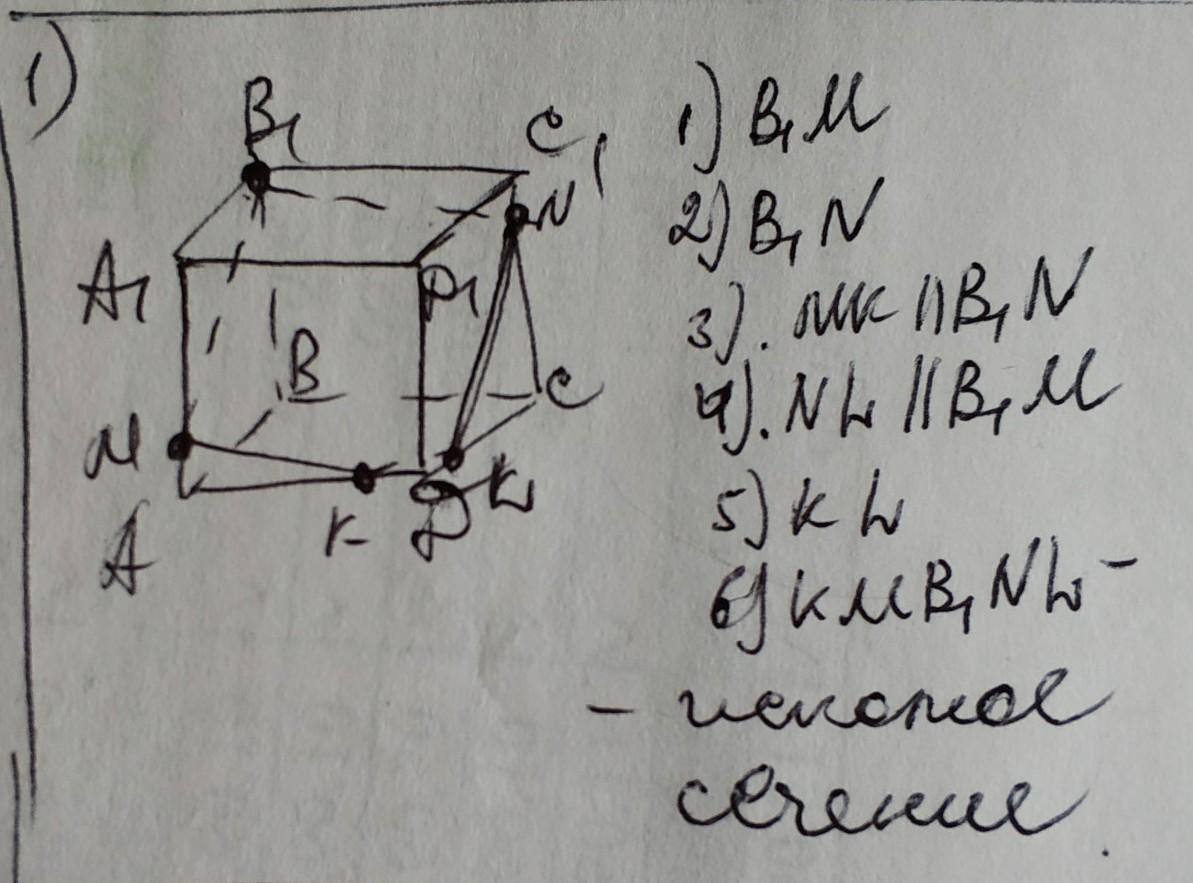 1)
B₁
C₁
N
A₁
D₁
B
C
M
K
D
L
A
1) B₁M
2) B₁N
3). MK || B₁N
4). NL || B₁M
5) KL
6) KMB₁NL -
- искомое
сечение.